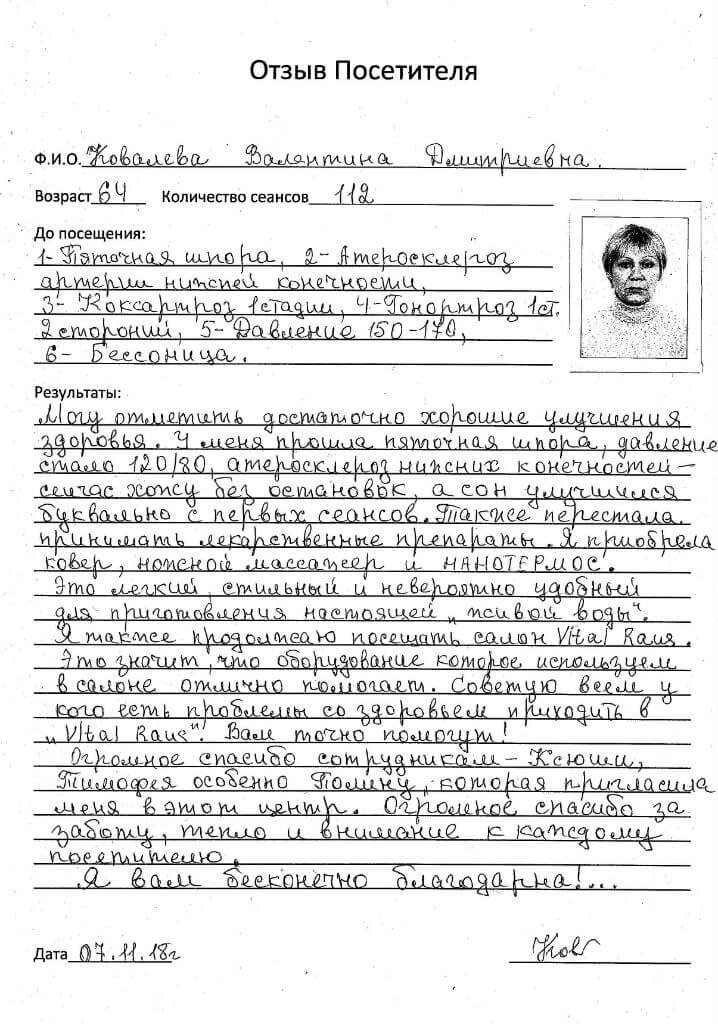 Отзыв Посетителя
Ф.И.О. Ковалева Валентина Дмитриевна.
Возраст 64 Количество сеансов 112
До посещения:
1- Пяточная шпора, 2- Атеросклероз
артерии нижней конечности,
3- Коксартроз 1стадии, 4-Гонортроз 1ст.
2сторонний, 5- Давление 150-170,
6- Бессоница.
Результаты:
Могу отметить достаточно хорошие улучшения
здоровья. У меня прошла пяточная шпора, давление
стало 120/80, атеросклероз нижних конечностей –
сейчас хожу без остановок, а сон улучшился
буквально с первых сеансов. Также перестала
принимать лекарственные препараты. Я приобрела
ковер, ножной массажер и НАНОТЕРМОС.
Это легкий, стильный и невероятно удобный
для приготовления настоящей „живой воды".
Я также продолжаю посещать салон Vital Raus.
Это значит, что оборудование которое используем
в салоне отлично помогает. Советую всем у
кого есть проблемы со здоровьем приходить в
„Vital Raus". Вам точно помогут!
Огромное спасибо сотрудникам – Ксюши,
Тимофея особенно Полину, которая пригласила
меня в этот центр. Огромное спасибо за
заботу, тепло и внимание к каждому
посетителю.
Я вам бесконечно благодарна!...
Дата 07.11.18г
Ков